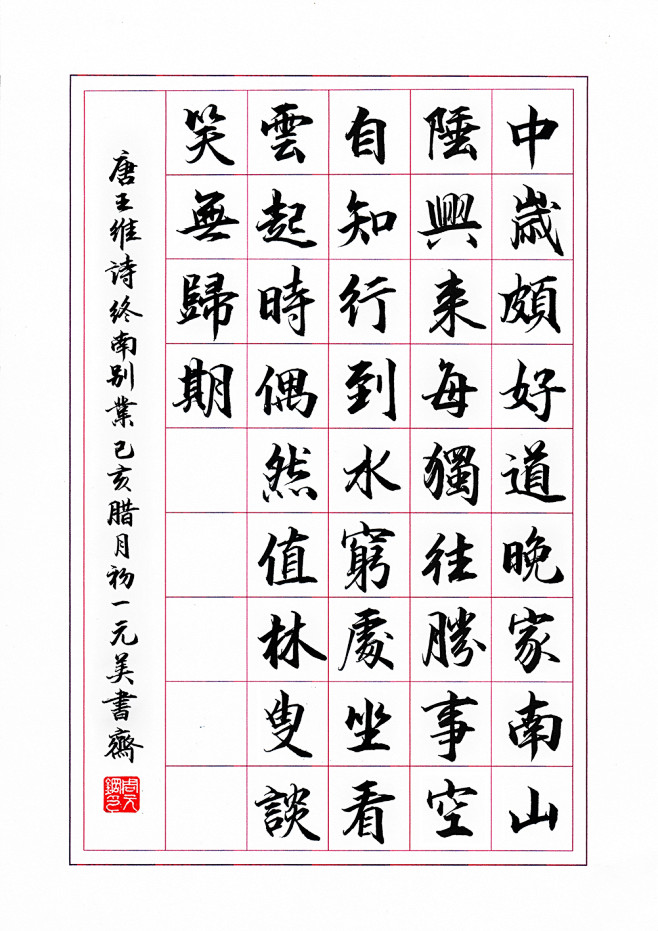 中歲頗好道晚家南山
陲興来每獨往勝事空
自知行到水窮處坐看
雲起時偶然值林叟談
笑無歸期
唐王維詩終南别業己亥腊月初一元美書齋